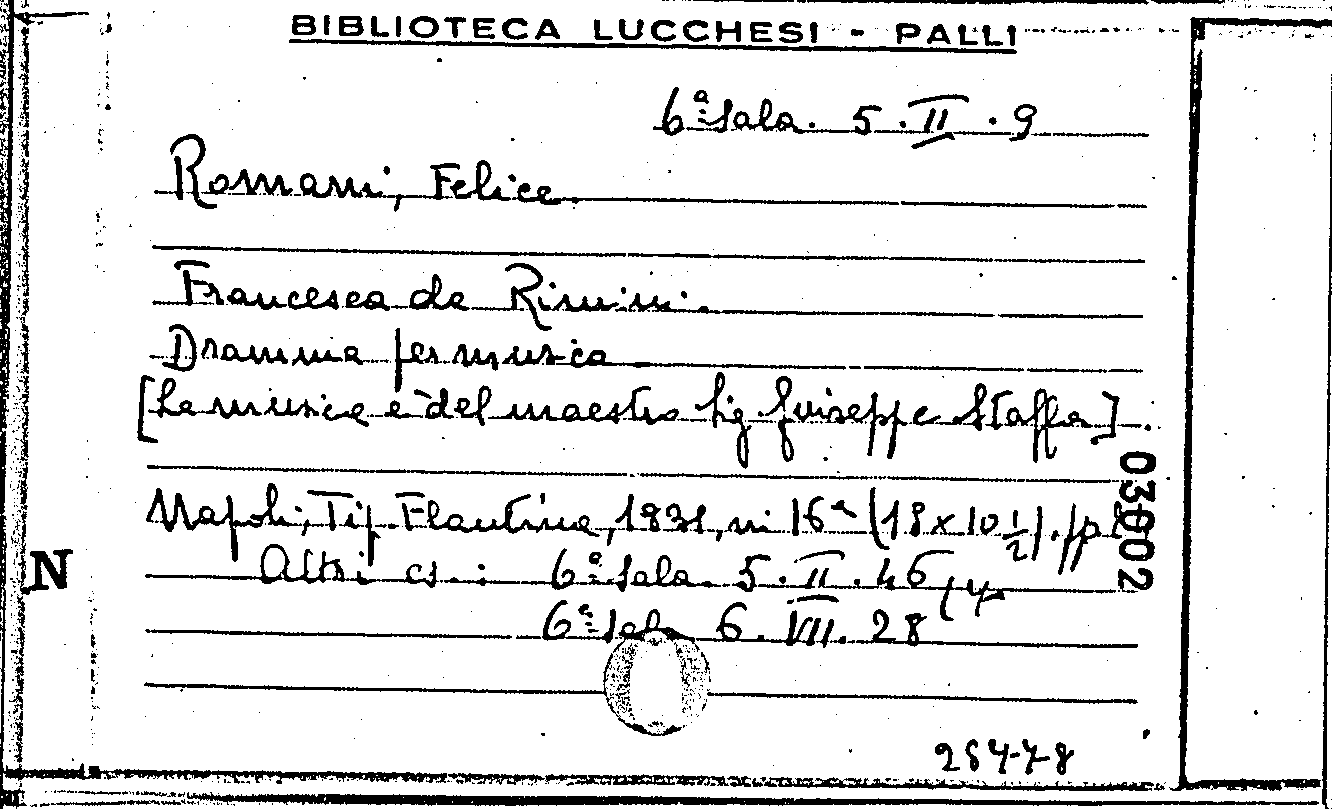 BIBLIOTECA LUCCHESI - PALLI
6ª Sala. 5. II. 9
Romani, Felice.
Francesca da Rimini.
Dramma per musica
[La musica è del maestro Sig Giuseppe Staffa].
Napoli, Tip. Flautina, 1831, in 16° (18 x 10 ½). pp
03002
N
Altri es.: 6ª Sala. 5. II. 46
6ª Sala 6. VII. 28